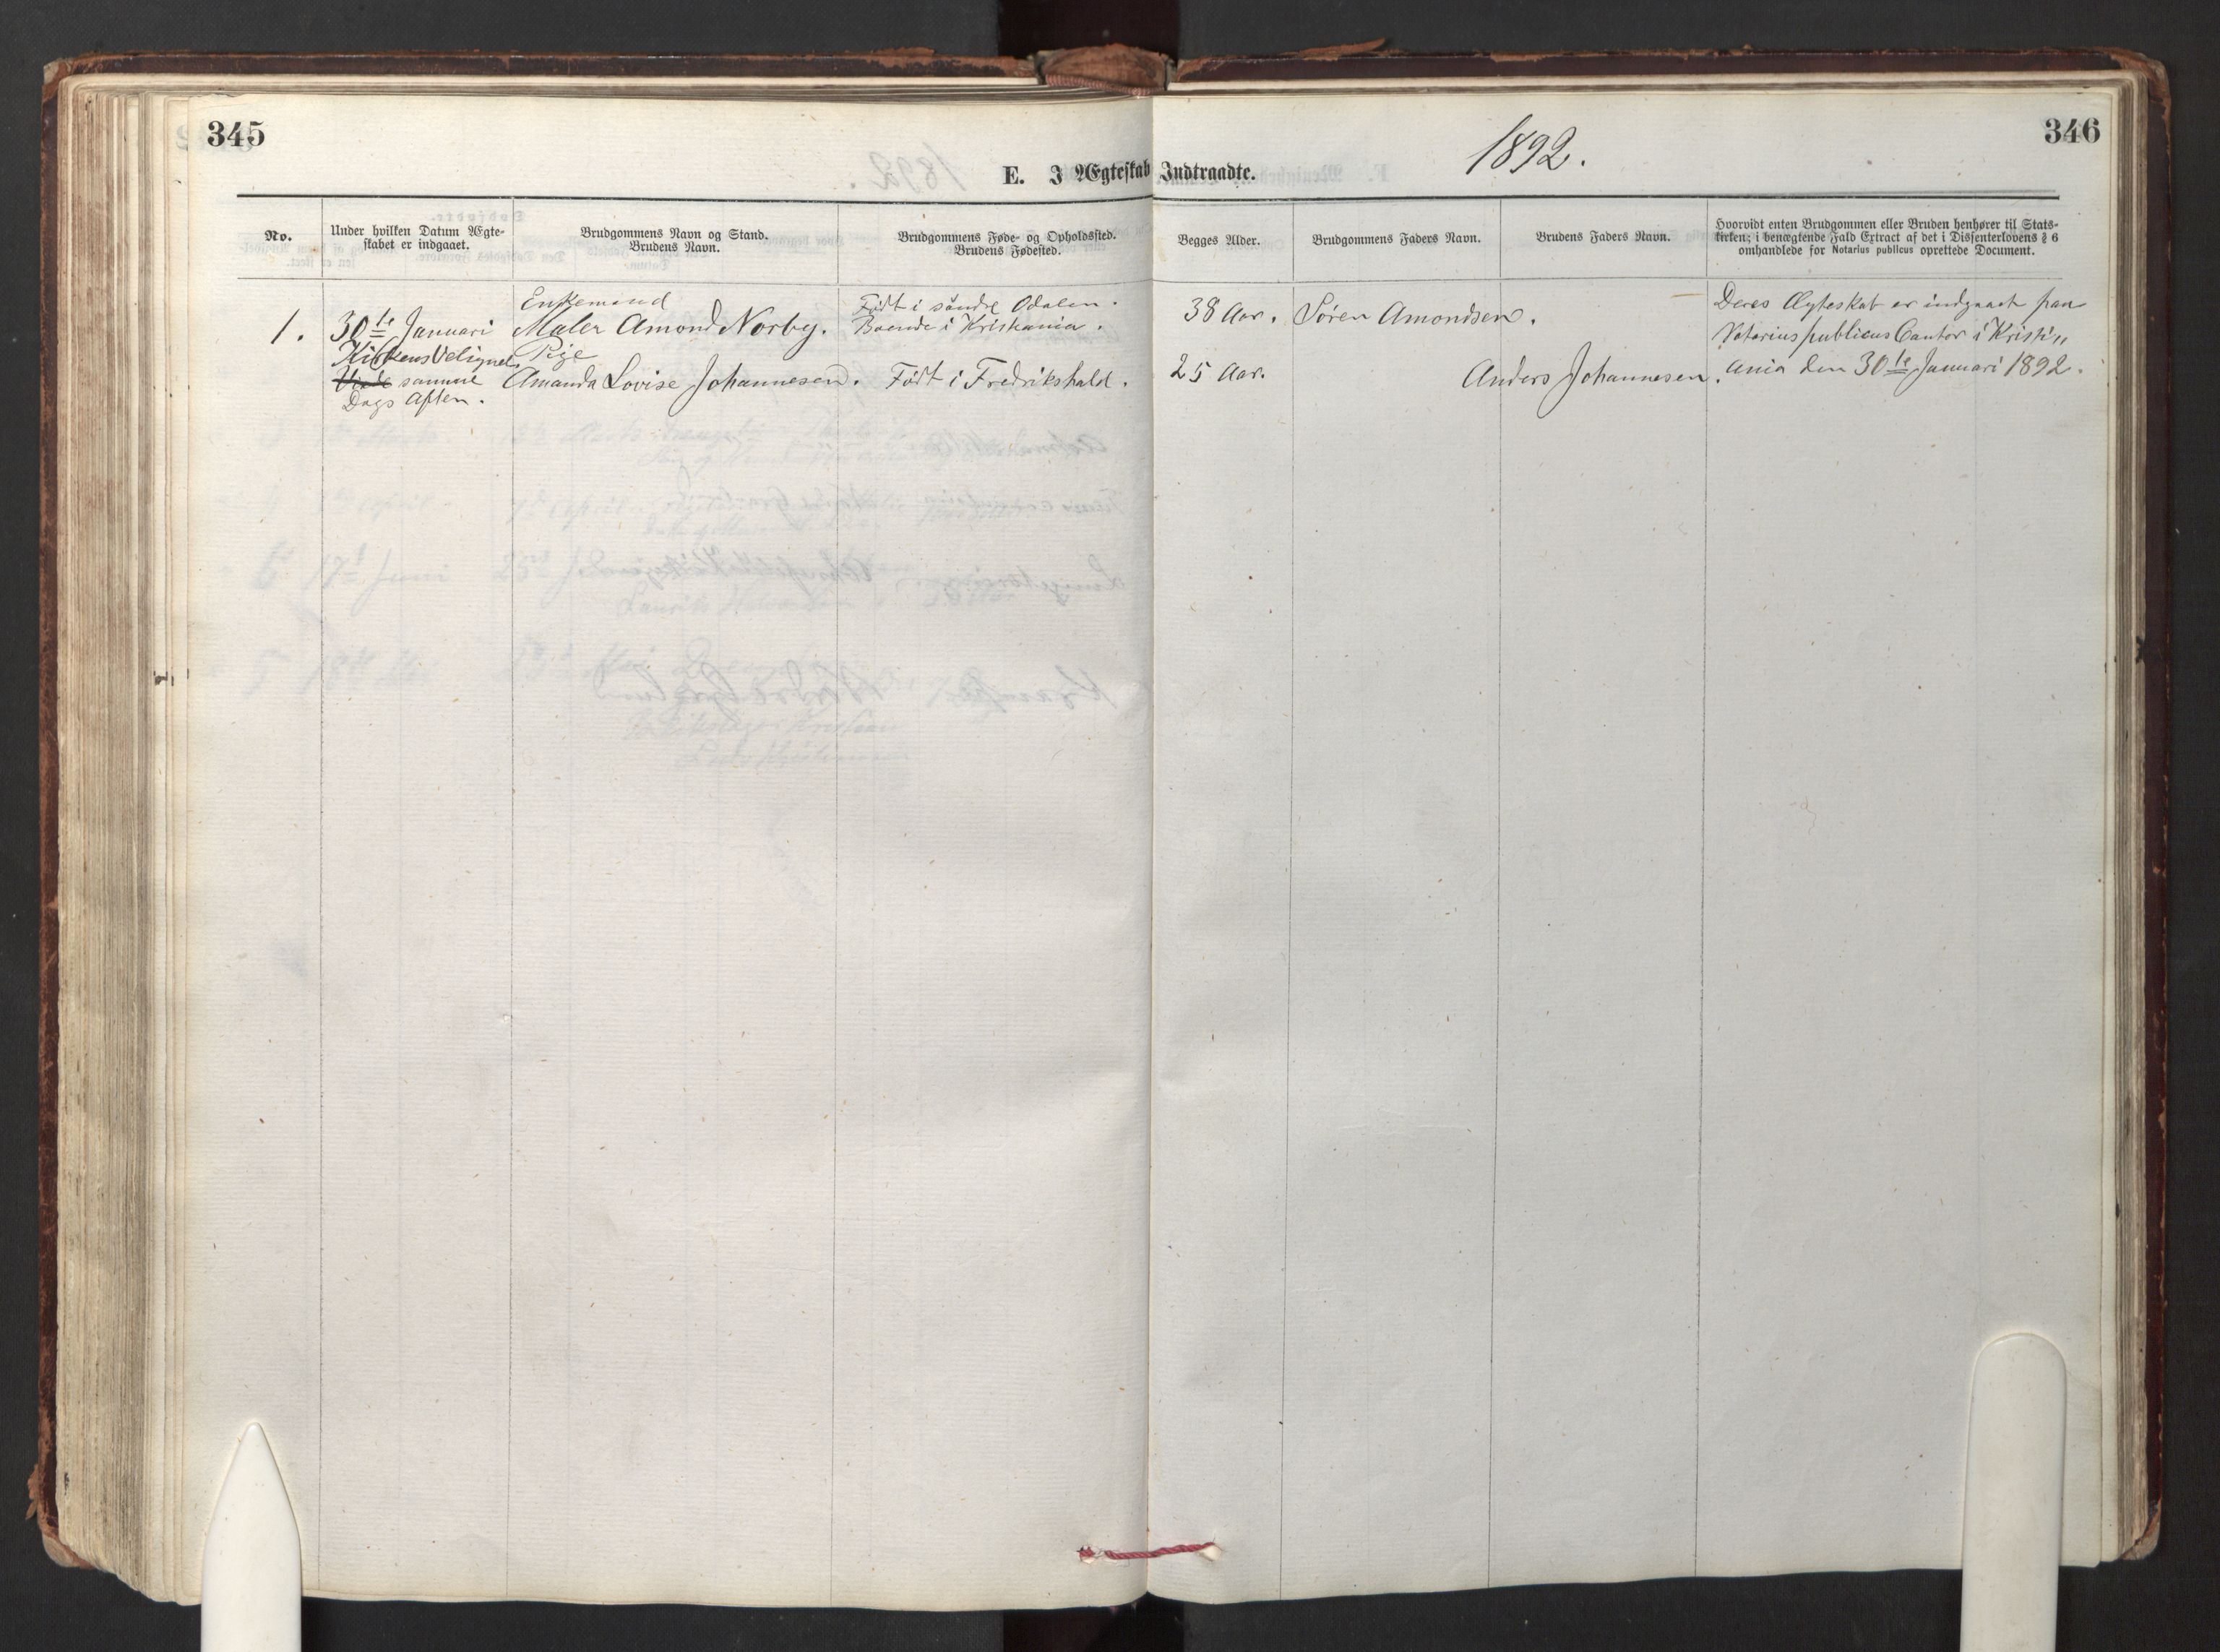 345
346
1892.
E. I Ægteskab Indtraadte.
No.
Under hvilken Datum Ægte-
skabet er indgaaet.
Brudgommens Navn og Stand.
Brudens Navn.
Brudgommens Føde- og Opholdssted.
Brudens Fødested.
Begges Alder.
Brudgommens Faders Navn.
Brudens Faders Navn.
Hvorvidt enten Brudgommen eller Bruden henhører til Stats-
kirken; i benægtende Fald Extract af det i Dissenterlovens § 6
omhandlede for Notarius publicus oprettede Document.
1.
30te Januari
Kirkens Velsignels
samme
Dags Aften.
Enkemand
Maler Amond Norby.
Pige
Amanda Lovise Johannesen.
Födt i söndre Odalen.
Boende i Kristiania.
Födt i Fredrikshald.
38 Aar.
25 Aar.
Sören Amondsen.
Anders Johannesen.
Deres Ægteskab er indgaaet paa
Notarius publicus Contor i Kristi„
ania den 30te Januari 1892.